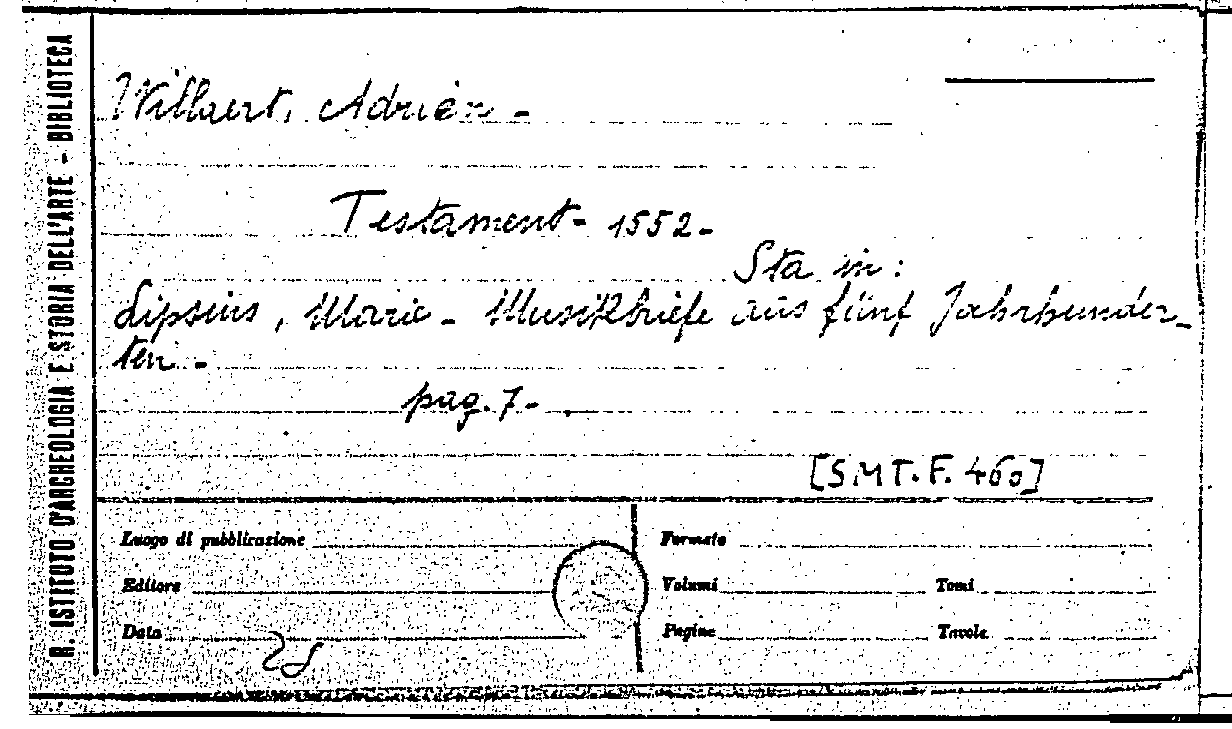 R. ISTITUTO D'ARCHEOLOGIA E STORIA DELL'ARTE - BIBLIOTECA
Willaert, Adrien -
Testament - 1552 -
Sta in:
Lipsius, Marie - Musikbriefe aus fünf Jahrhunder-
ten -
pag. 7 -
[S.M.T. F. 460]
Luogo di pubblicazione
Formato
Editore
Volumi
Tomi
Data
Pagine
Tavole